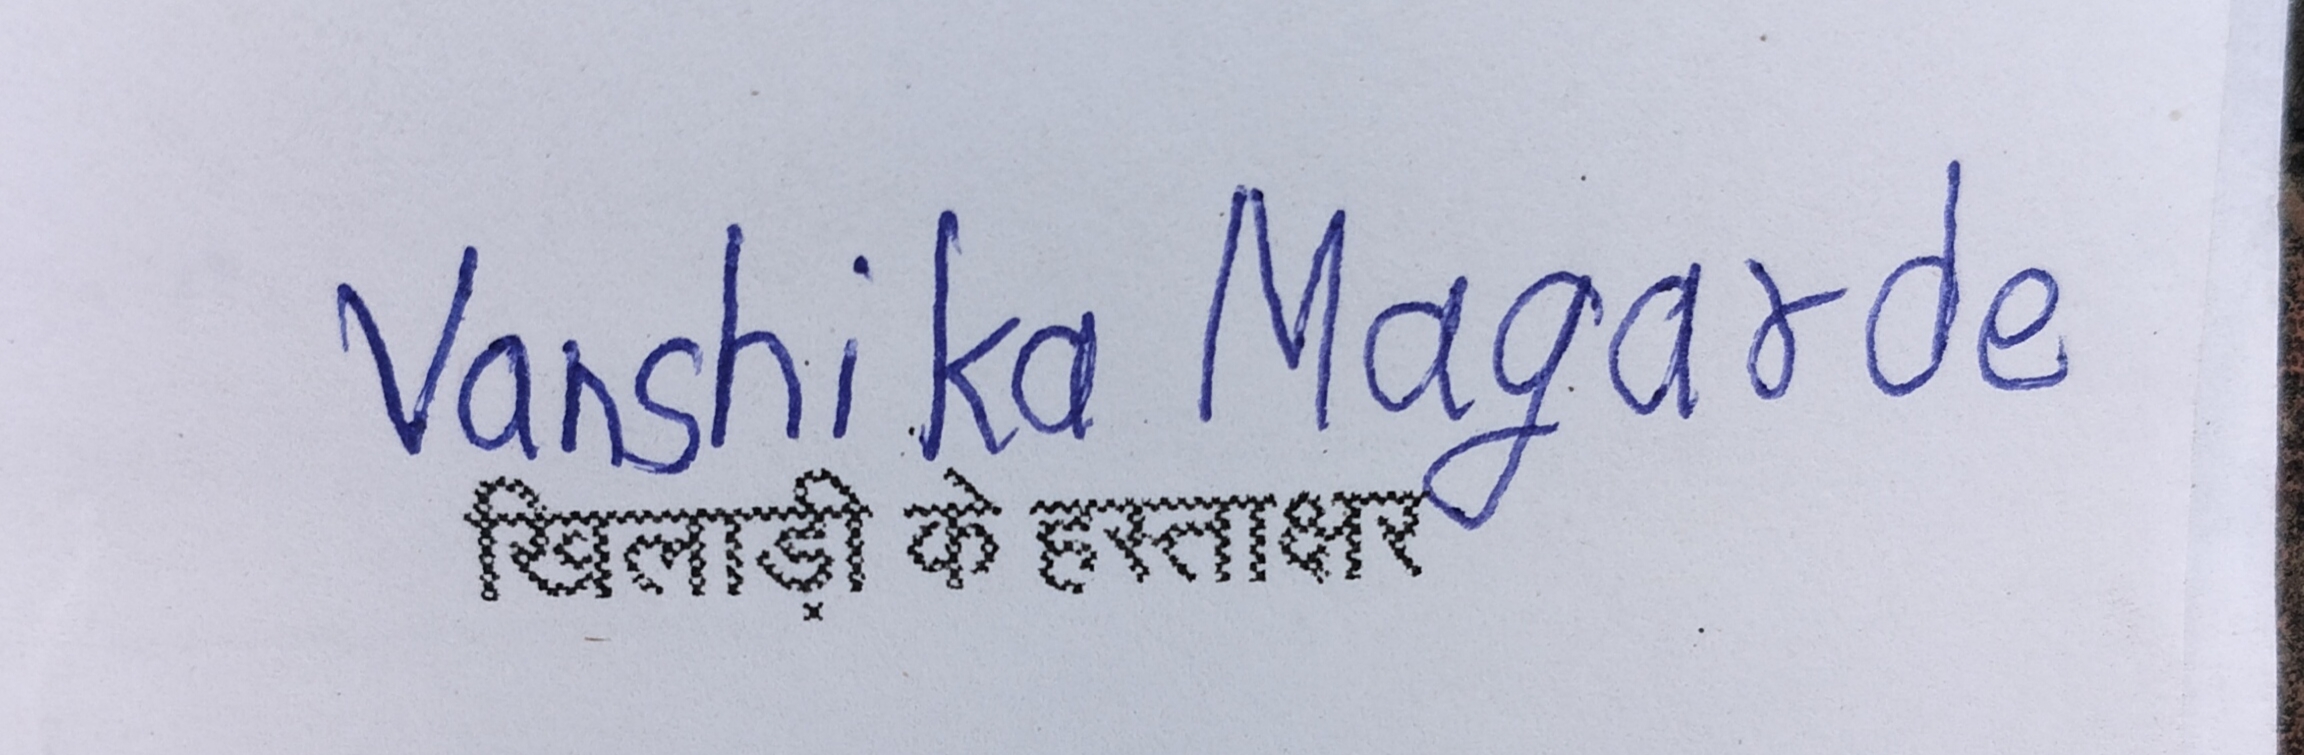 Vanshika Magarde
खिलाड़ी के हस्ताक्षर